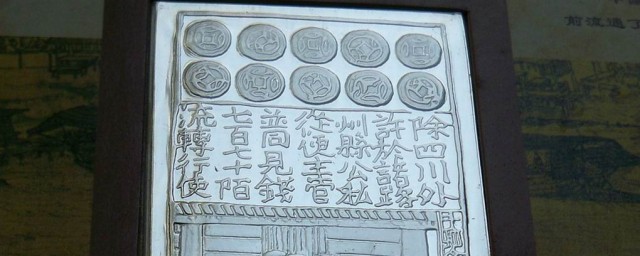 除四川外
許於諸路
州縣公私
從便主管
並同見錢
七百七十陌
流轉行使
前流通